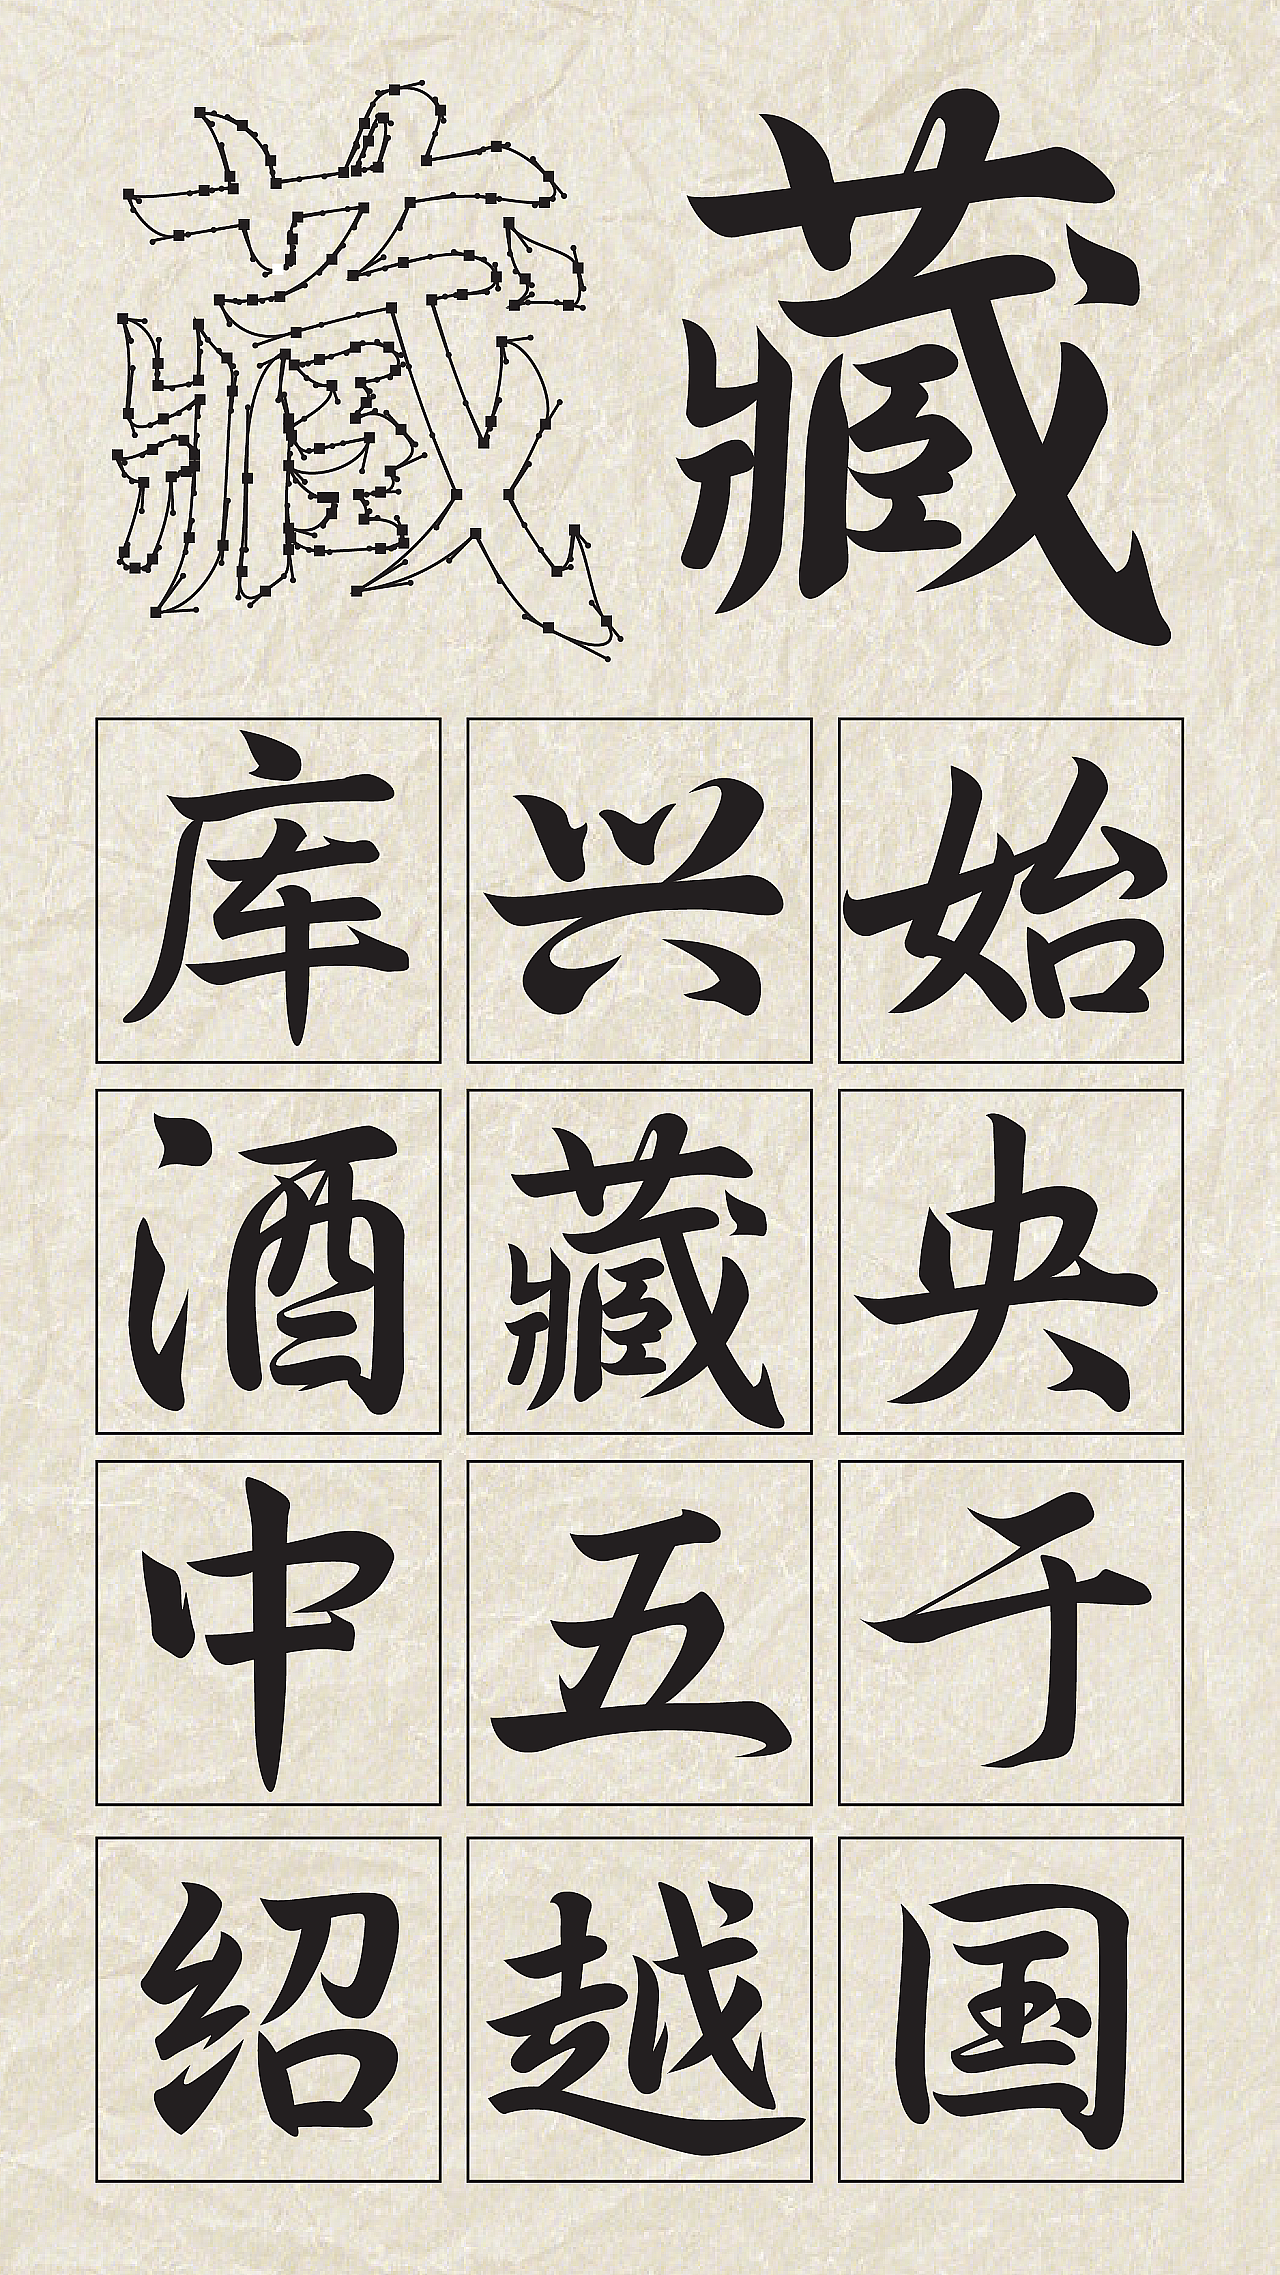 藏 藏
库 兴 始
酒 藏 央
中 五 于
绍 越 国